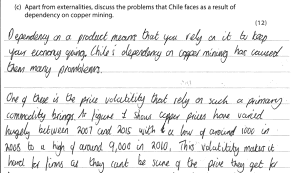 (c) Apart from externalities, discuss the problems that Chile faces as a result of
dependency on copper mining.
(12)
Dependency on a product means that you rely on it to keep
your economy going. Chile's dependency on copper mining has caused
them many promblems.
One of these is the price volutility that rely on such a primary
commodity brings. As figure 1 shows copper prices have varied
hugely between 2007 and 2015 with a low of around 1000 in
2008 to a high of around 9,000 in 2010. This volutility makes it
hard for firms as they cant be sure of the price they get for